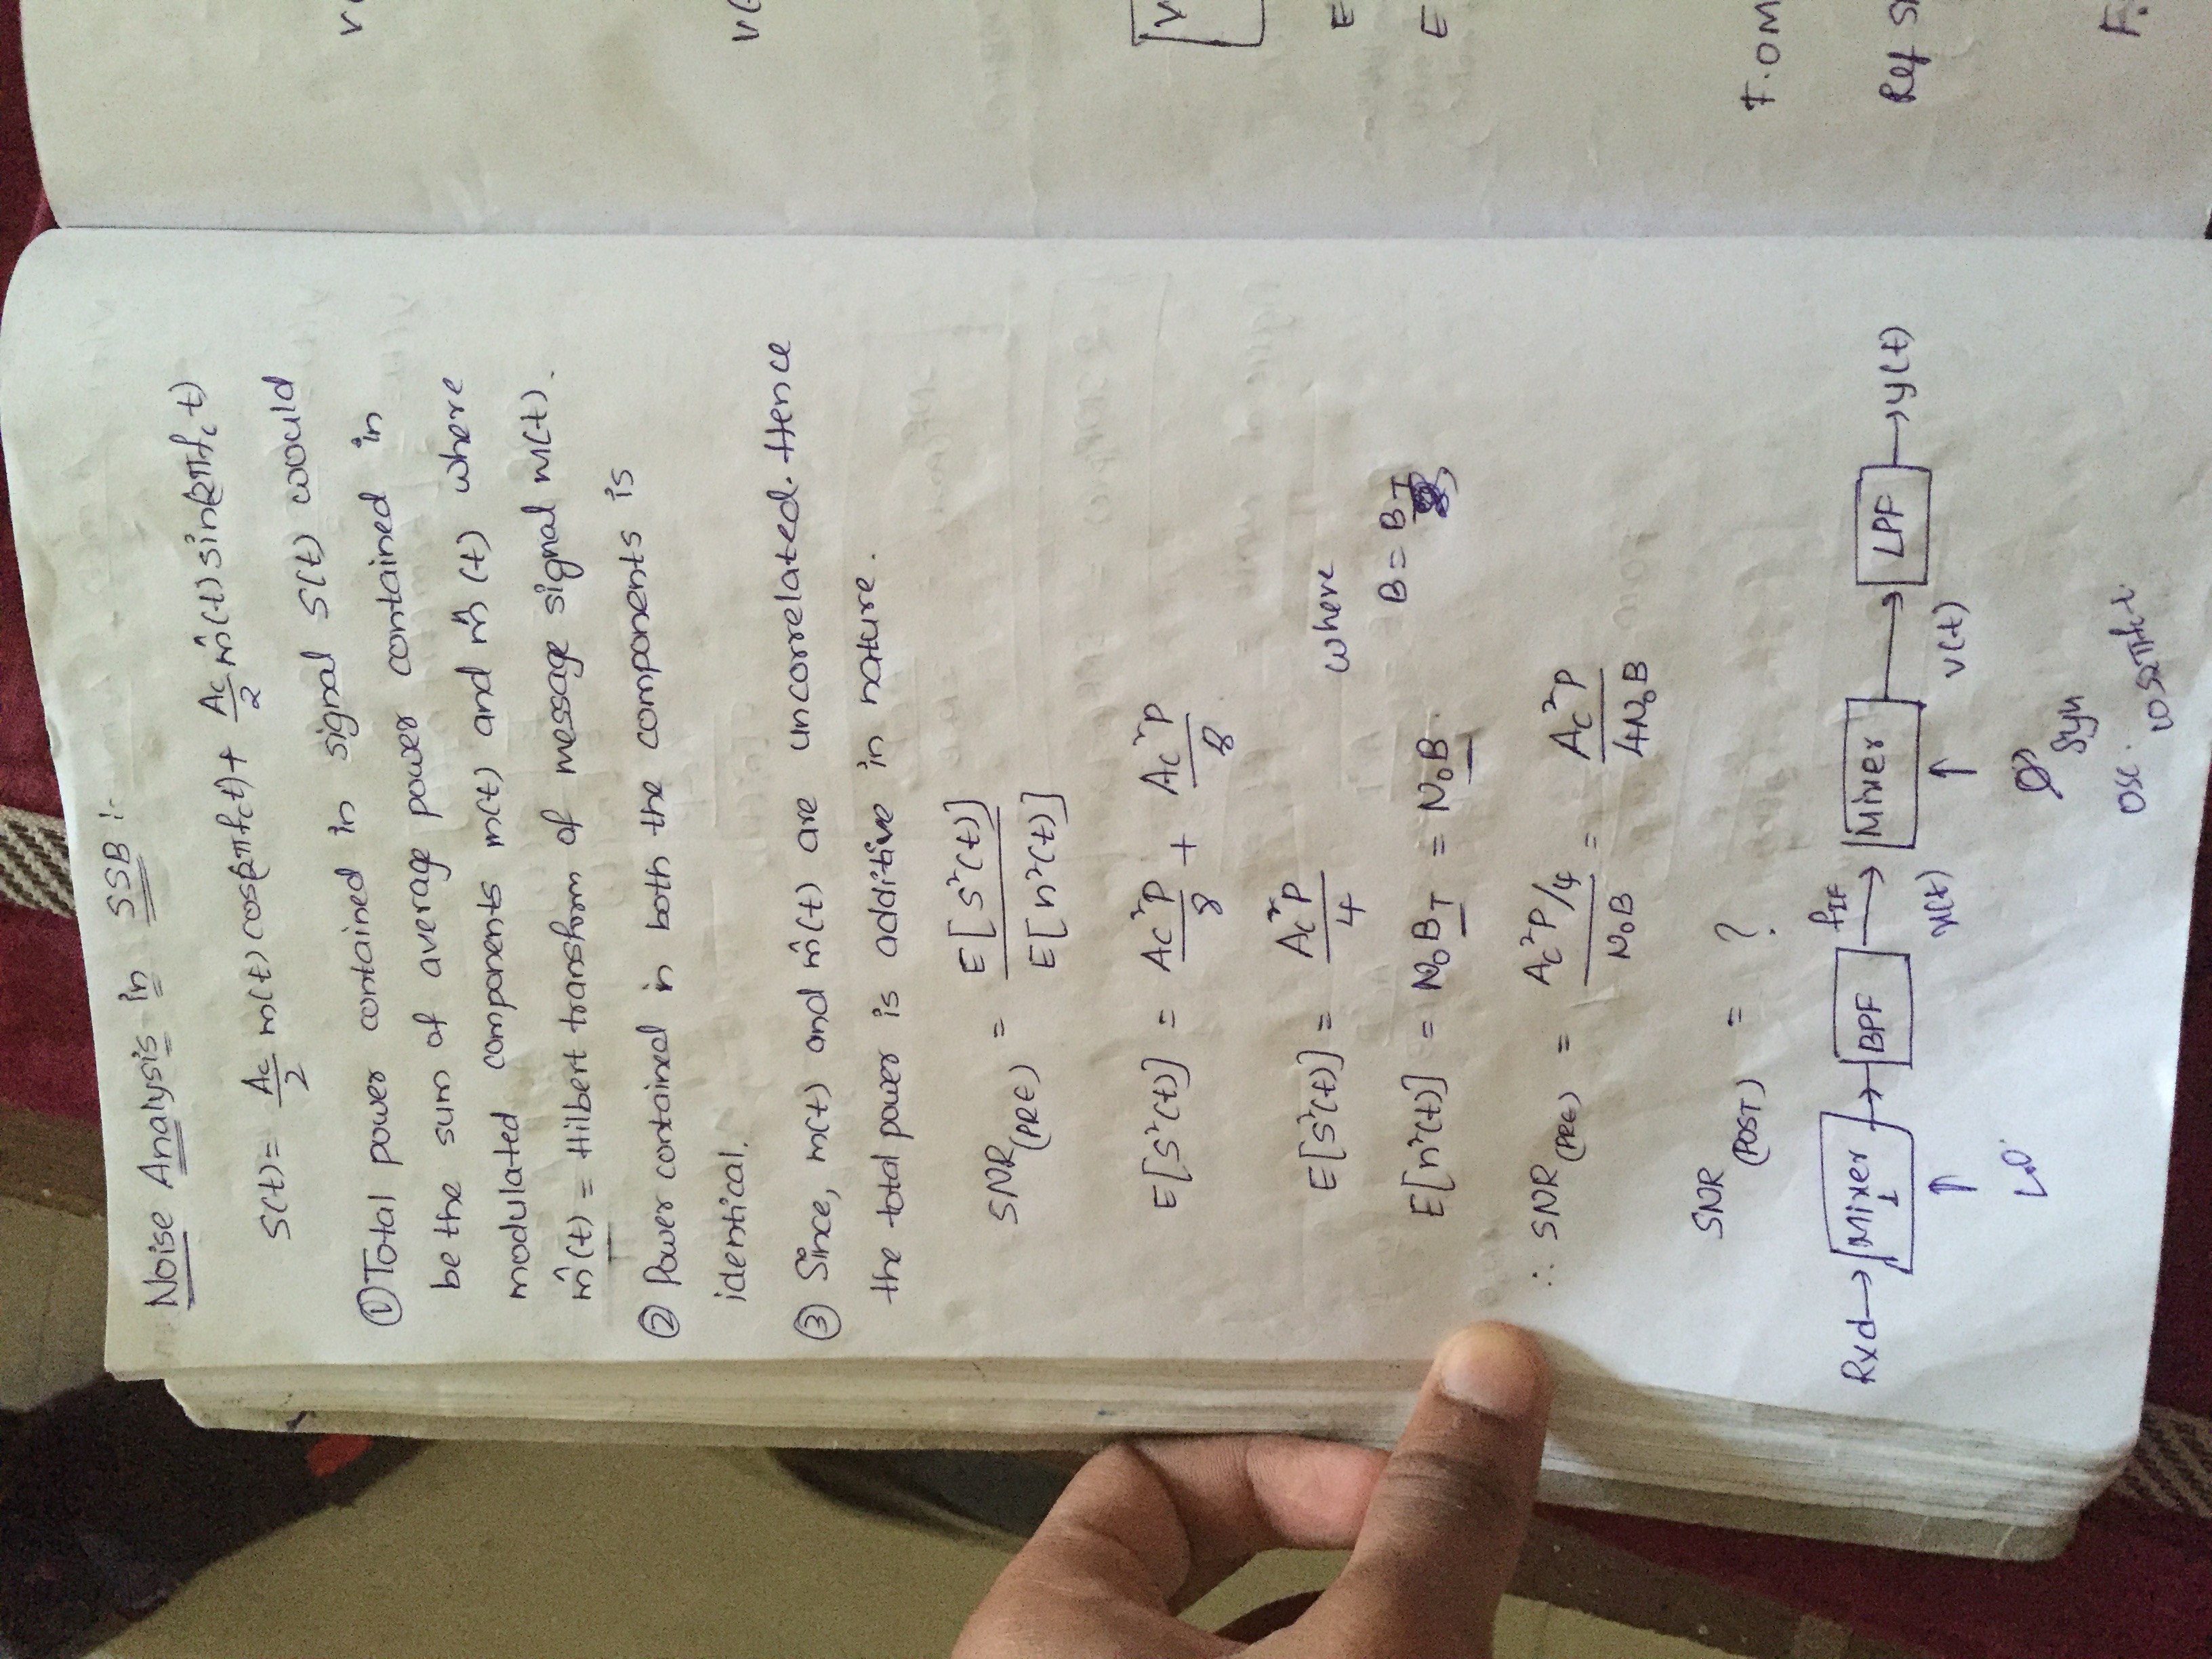 Noise Analysis in SSB :-
S(t) = Ac/2 m(t) cos(2πfct) + Ac/2 m̂(t) sin(2πfct)
① Total power contained in signal S(t) would
be the sum of average power contained in
modulated components m(t) and m̂(t) where
m̂(t) = Hilbert transform of message signal m(t).
② Power contained in both the components is
identical.
③ Since, m(t) and m̂(t) are uncorrelated. Hence
the total power is additive in nature.
SNR(PRE) = E[S²(t)] / E[n²(t)]
E[S²(t)] = Ac²P/8 + Ac²P/8
E[S²(t)] = Ac²P/4 where
B = BT
E[n²(t)] = N₀BT = N₀B.
∴ SNR(PRE) = (Ac²P/4) / N₀B = Ac²P / 4N₀B
SNR(POST) = ?
Rxd → Mixer 1 → BPF → fIF → Mixer → LPF → y(t)
x(t) v(t)
L.O.
Syn
Osc. cos2πfct.
V(
E
E
F.OM
Ref S
F.